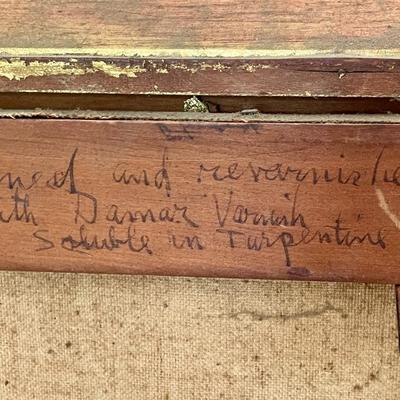 ned and revarnishe
ith Damar Varnish
Soluble in Turpentine